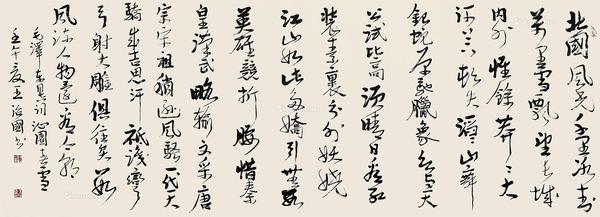 北國風光千里冰封
萬里雪飄望長城
内外惟餘莽〻大
河上下頓失滔〻山舞
銀蛇原馳臘象欲與天
公試比高須晴日看紅
裝素裹分外妖嬈
江山如此多嬌引無數
英雄競折腰惜秦
皇漢武略輸文采唐
宗宋祖稍遜風騷一代天
驕成吉思汗祇識彎
弓射大雕俱往矣數
風流人物還看今朝
毛澤東詞沁園春雪
壬午夏王治國書